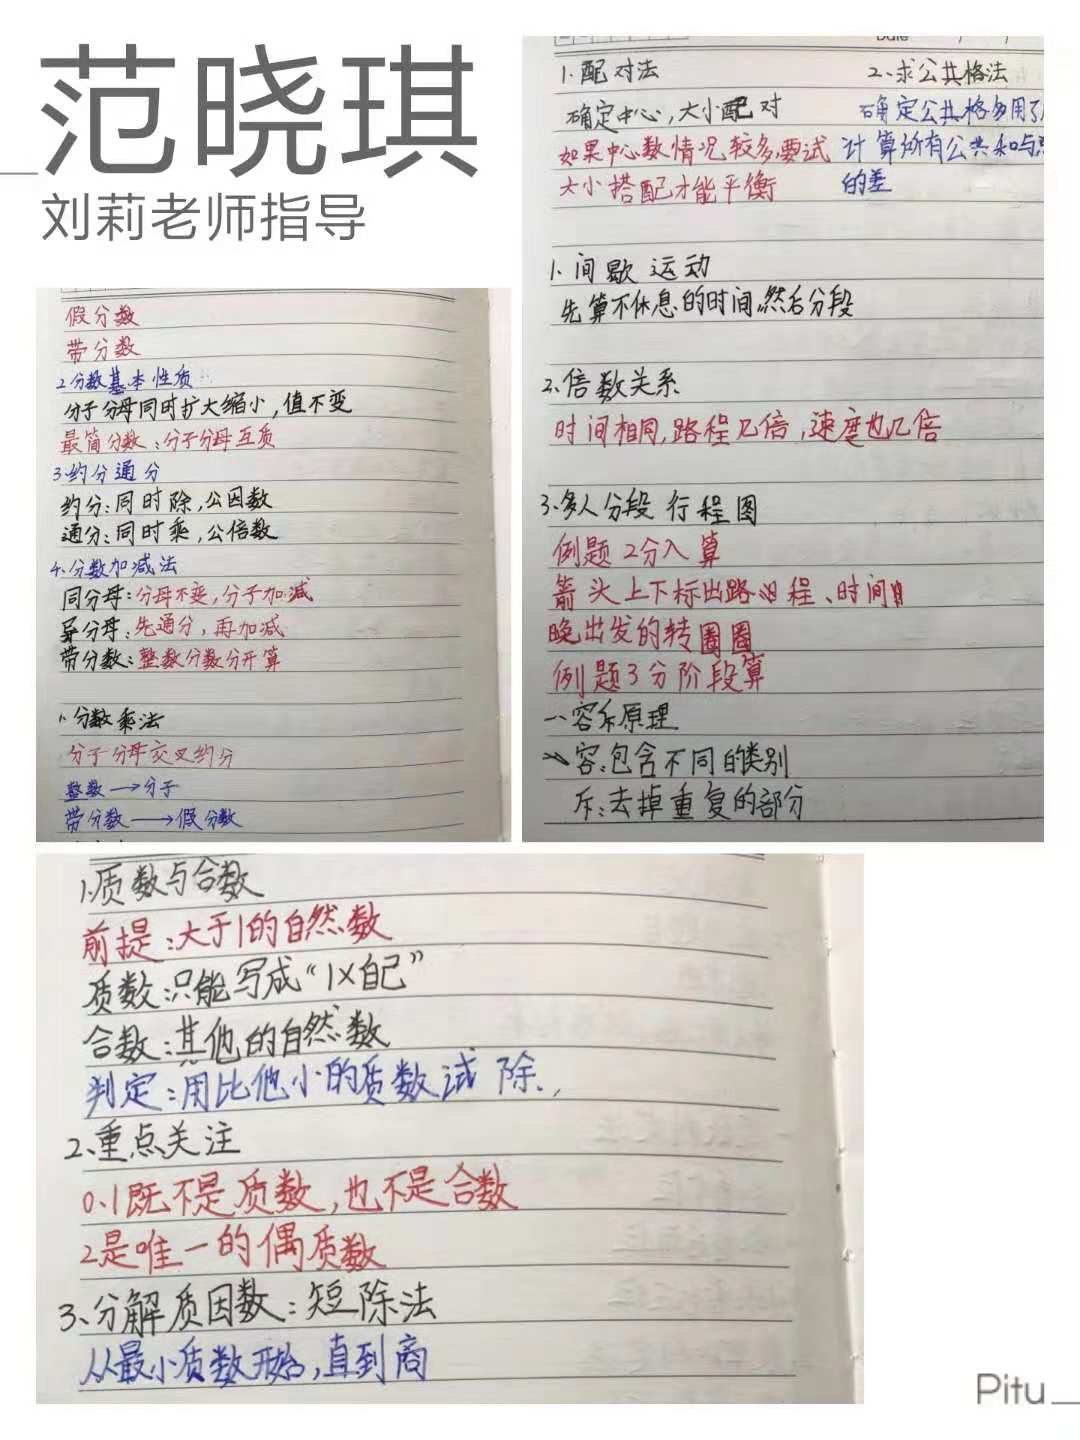 范晓琪
刘莉老师指导
假分数
带分数
2分数基本性质
分子分母同时扩大缩小,值不变
最简分数:分子分母互质
3.约分通分
约分:同时除,公因数
通分:同时乘,公倍数
4.分数加减法
同分母:分母不变,分子加减
异分母:先通分,再加减
带分数:整数分数分开算
1.分数乘法
分子分母交叉约分
整数→分子
带分数→假分数
Date
1.配对法
确定中心,大小配对
如果中心数情况较多,要试
大小搭配才能平衡
2.求公共格法
确定公共格多用了
计算所有公共和与
的差
1.间歇运动
先算不休息的时间,然后分段
2.倍数关系
时间相同,路程几倍,速度也几倍
3.多人分段行程图
例题2分入算
箭头上下标出路程、时间
晚出发的转圈圈
例题3分阶段算
一容斥原理
容:包含不同的类别
斥:去掉重复的部分
1.质数与合数
前提:大于1的自然数
质数:只能写成“1×自己”
合数:其他的自然数
判定:用比他小的质数试除
2.重点关注
0.1既不是质数,也不是合数
2是唯一的偶质数
3.分解质因数:短除法
从最小质数开始,直到商
Pitu